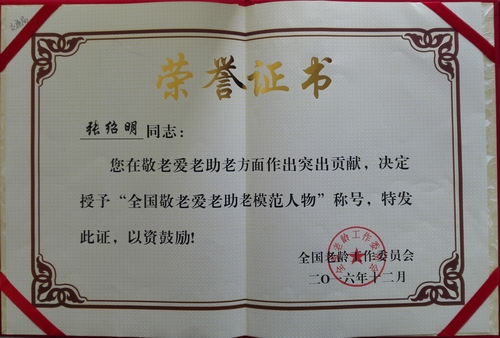 荣誉证书
张绍明同志：
您在敬老爱老助老方面作出突出贡献，决定
授予“全国敬老爱老助老模范人物”称号，特发
此证，以资鼓励!
全国老龄工作委员会
二〇一六年十二月
全国老龄工作委员会